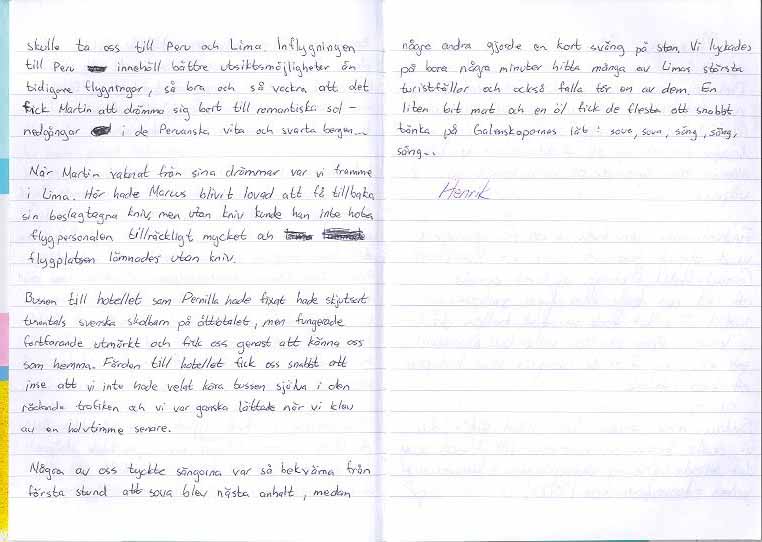 skulle ta oss till Peru och Lima. Inflygningen
till Peru innehöll bättre utsiktsmöjligheter än
tidigare flygningar, så bra och så vackra att det
fick Martin att drömma sig bort till romantiska sol-
nedgångar i de Peruanska vita och svarta bergen...
När Martin vaknat från sina drömmar var vi framme
i Lima. Här hade Marcus blivit lovad att få tillbaka
sin beslagtagna kniv, men utan kniv kunde han inte hota
flygpersonalen tillräckligt mycket och
flygplatsen lämnades utan kniv.
Bussen till hotellet som Pernilla hade fixat hade skjutsat
tusentals svenska skolbarn på åttiotalet, men fungerade
fortfarande utmärkt och fick oss genast att känna oss
som hemma. Färden till hotellet fick oss snabbt att
inse att vi inte hade velat köra bussen själva i den
rådande trafiken och vi var ganska lättade när vi klev
av en halvtimme senare.
Några av oss tyckte sängarna var så bekväma från
första stund att sova blev nästa anhalt, medan
några andra gjorde en kort sväng på stan. Vi lyckades
på bara några minuter hitta många av Limas största
turistfällor och också falla för en av dem. En
liten bit mat och en öl fick de flesta att snabbt
tänka på Galenskaparnas låt: sova, sova, säng, säng,
säng...
Henrik